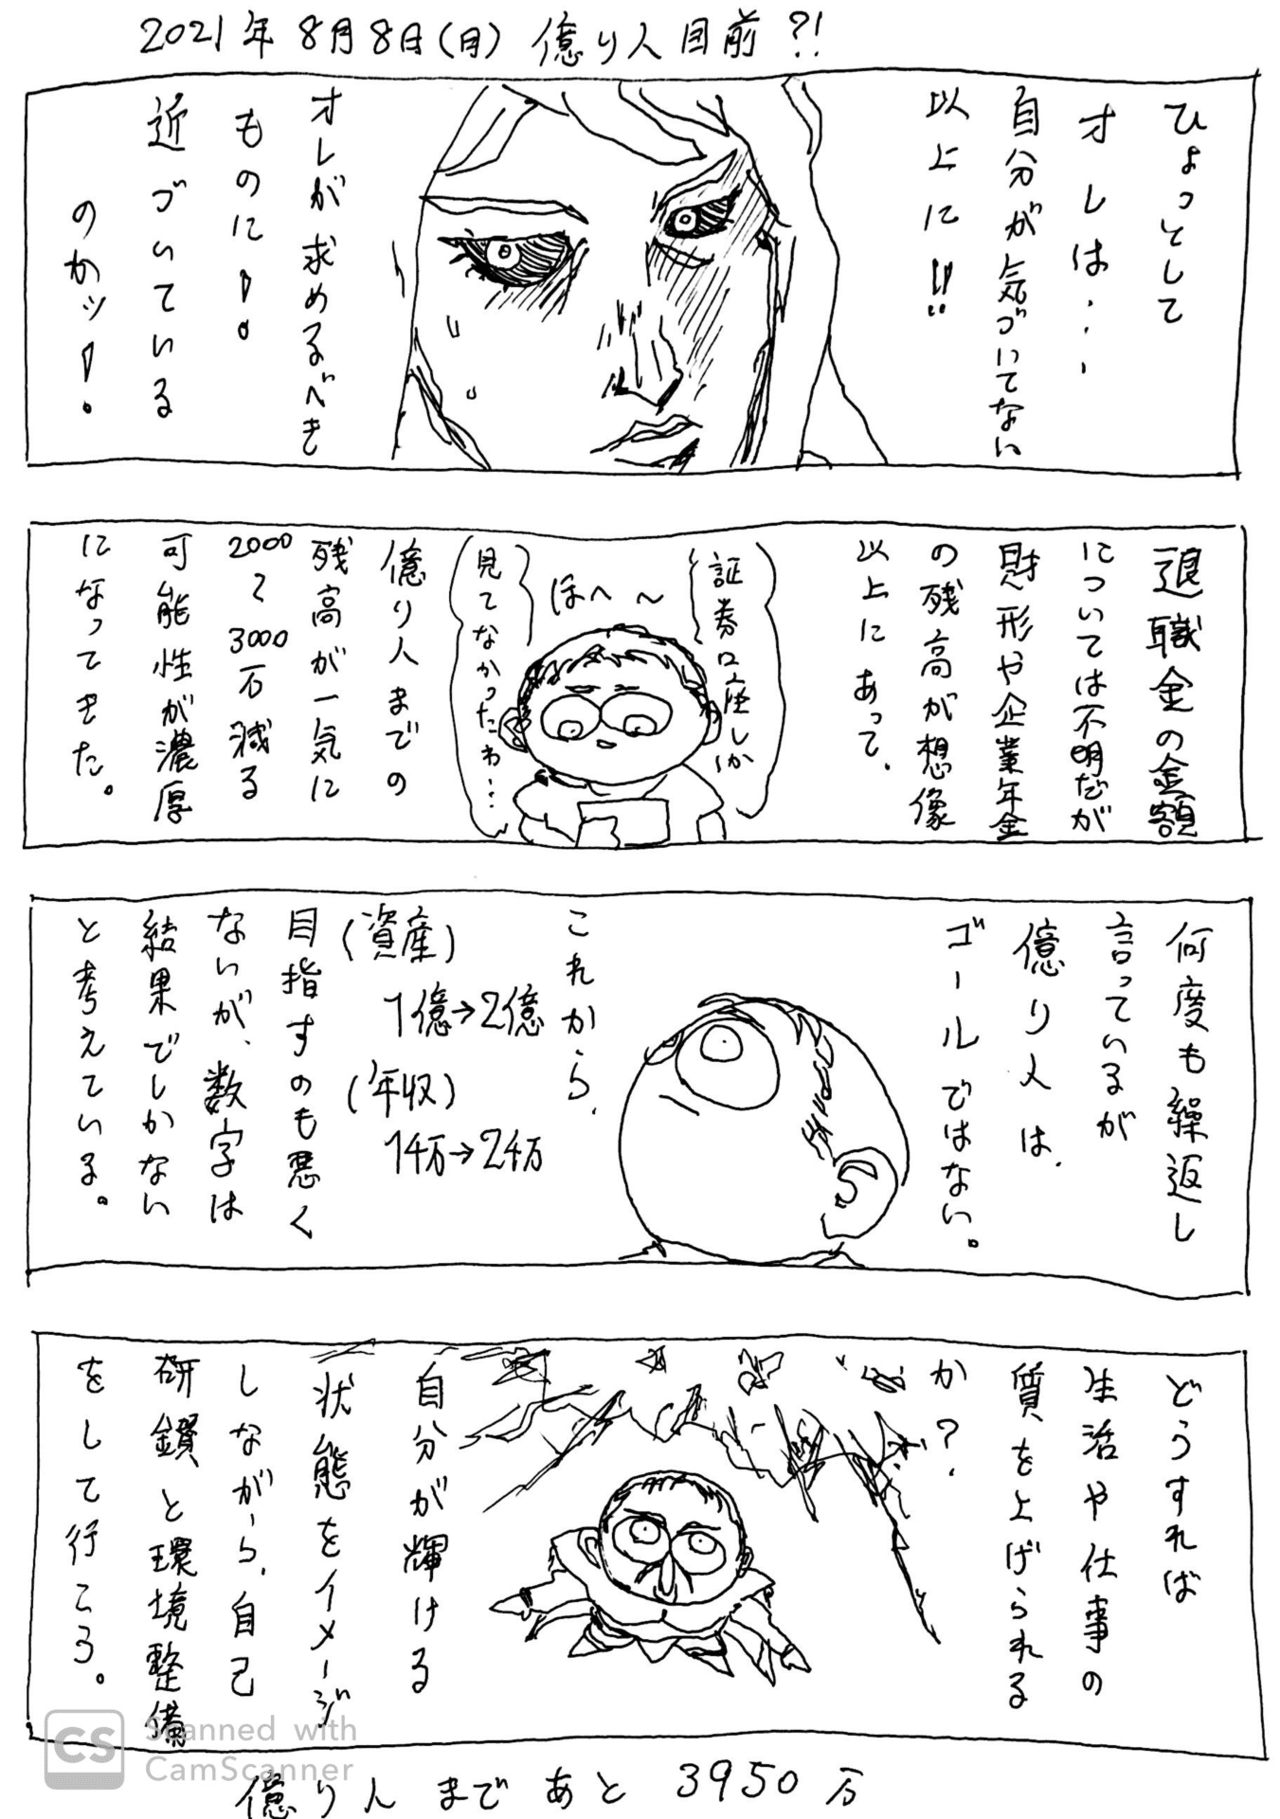 2021年8月8日(月) 億り人目前?!
ひょっとして
オレは・・・
自分が気づいてない
以上に!!
オレが求めるべき
ものに!
近づいている
のかッ!
退職金の金額
については不明だが
財形や企業年金
の残高が想像
以上にあって、
証券口座しか
ほへ〜
見てなかったわ…
億り人までの
残高が一気に
2000〜3000万減る
可能性が濃厚
になってきた。
何度も繰返し
言っているが
億り人は、
ゴールではない。
これから、
(資産)
1億→2億
(年収)
1千万→2千万
目指すのも悪く
ないが、数字は
結果でしかない
と考えている。
どうすれば
生活や仕事の
質を上げられる
か?
自分が輝ける
状態をイメージ
しながら、自己
研鑚と環境整備
をして行こう。
CS Scanned with
CamScanner
億り人まであと3950万